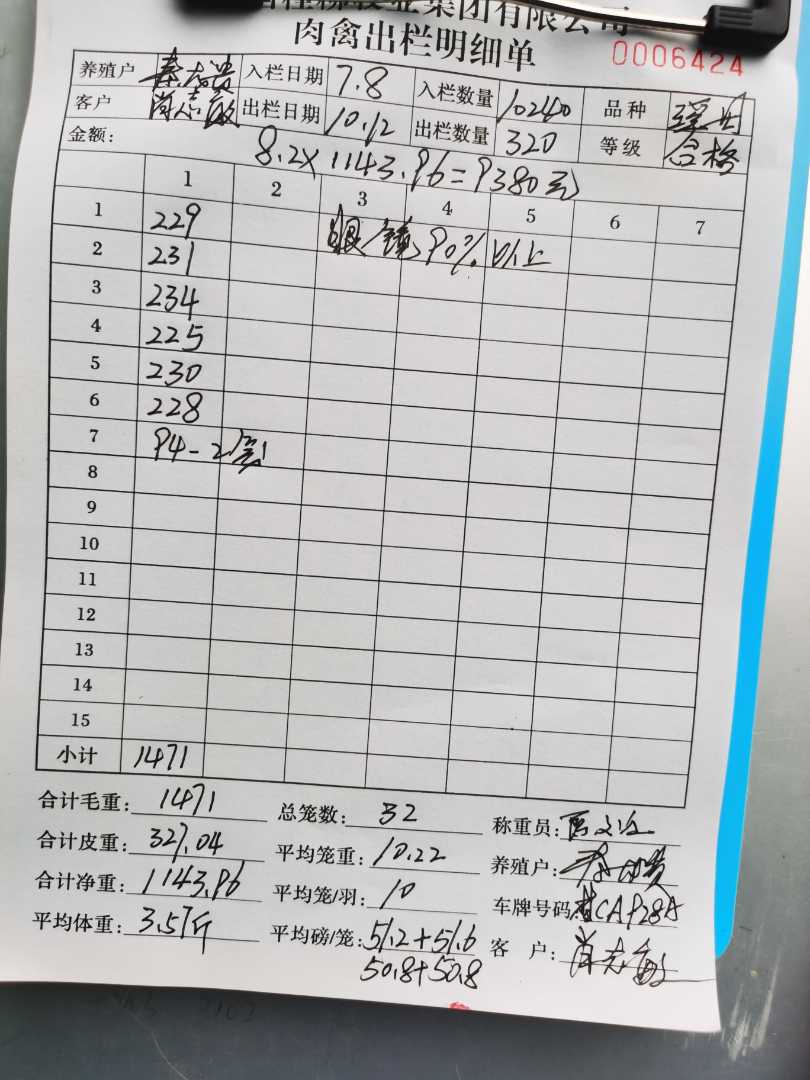 集团有限公司
肉禽出栏明细单 0006424
养殖户 入栏日期 7.8 入栏数量 10240 品种
客户 肖志敏 出栏日期 10.12 出栏数量 320 等级 合格
金额: 8.2×1143.96=9380元
1 2 3 4 5 6 7
1 229 眼镜90%以上
2 231
3 234
4 225
5 230
6 228
7 94-2
8
9
10
11
12
13
14
15
小计 1471
合计毛重: 1471 总笼数: 32 称重员:
合计皮重: 327.04 平均笼重: 10.22 养殖户:
合计净重: 1143.96 平均笼/羽: 10 车牌号码:
平均体重: 3.57斤 平均磅/笼: 51.2+51.6 客户: 肖志敏
50.8+50.8